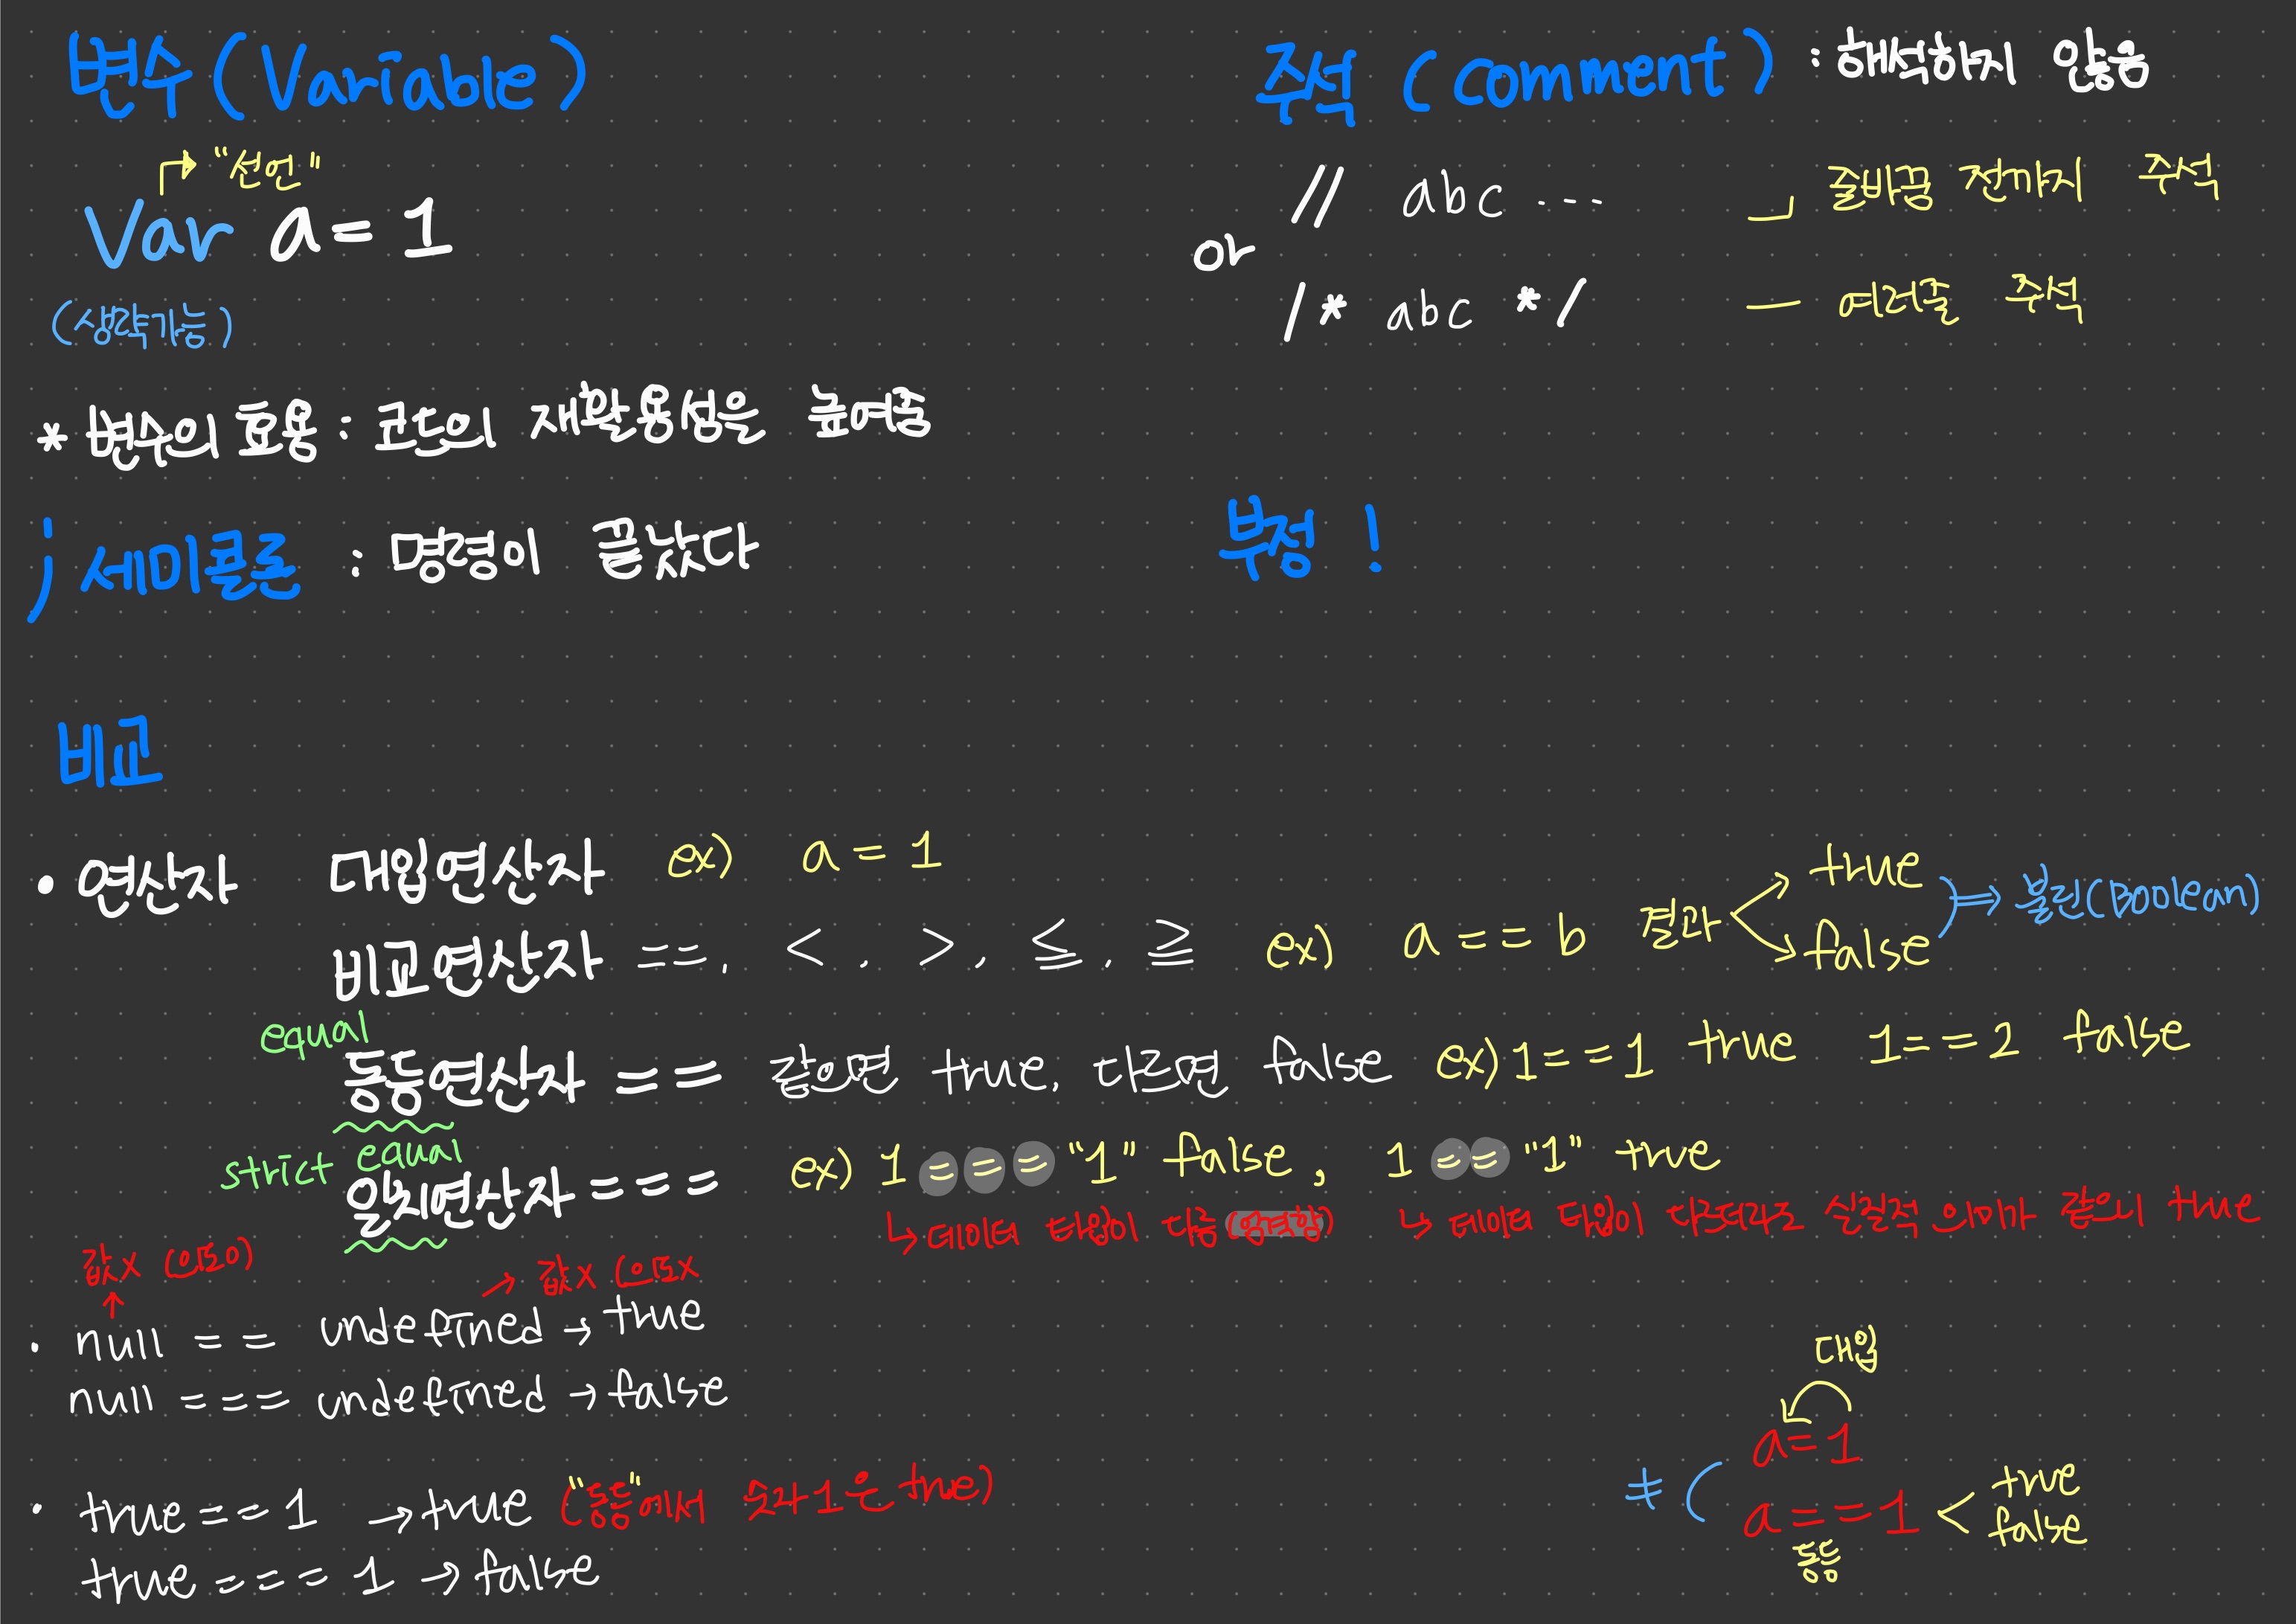 변수(Variable)
"선언"
Var a = 1
(생략가능)
* 변수의 효용 : 코드의 재활용성을 높여줌
; 세미콜론 : 명령이 끝났다
주석 (comment) : 해석하지 않음
// abc ... 줄바꿈 전까지 주석
or
/* abc */ — 여러줄 주석
부정 !
비교
• 연산자 대입연산자 ex) a = 1
비교연산자 ==, <, >, ≦, ≧ ex) a == b 결과 < true false ⇒ 불린(Boolean)
equal
동등연산자 == 같으면 true, 다르면 false ex) 1 == 1 true 1 == 2 false
strict equal
일치연산자 === ex) 1 === "1" false, 1 == "1" true
↳ 데이터 타입이 다름 (엄격함) ↳ 데이터 타입이 다르더라도 실질적 의미가 같으니 true
값X (의도O)
→ 값X (의도X
· null == undefined → true
null === undefined → false
· true == 1 → true ("동등"에서 숫자1은 true)
true === 1 → false
대입
a = 1
≠ (
a == 1 < true false
동등